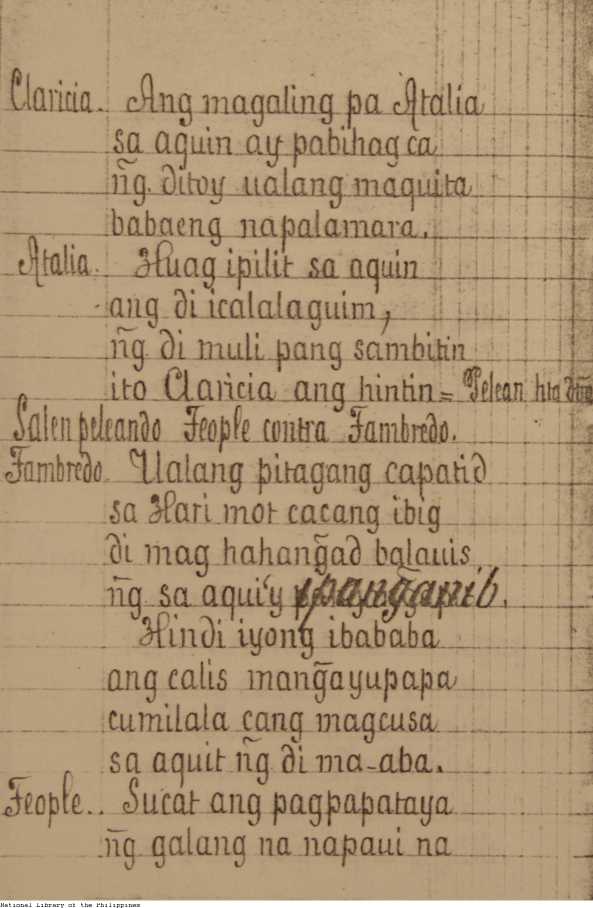 Claricia. Ang magaling pa Atalia
sa aquin ay pabihag ca
n͠g. ditoy ualang maquita
babaeng napalamara.
Atalia. Huag ipilit sa aquin
ang di icalalaguim,
n͠g. di muli pang sambitin
ito Claricia ang hintin = Pelean hta
Salen peleando Feople contra Fambredo.
Fambredo. Ualang pitagang capatid
sa Hari mot cacang ibig
di mag hahang̃ad balauis
n͠g. sa aqui'y ipang̃anib.
Hindi iyong ibababa
ang calis mang̃ayupapa
cumilala cang magcusa
sa aquit n͠g di ma-aba.
Feople.. Sucat ang pagpapataya
n͠g galang na napaui na
National Library of the Philippines